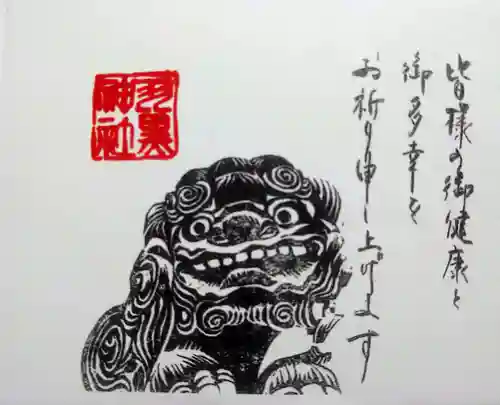 皆様の御健康と
御多幸を
お祈り申し上げます
神社